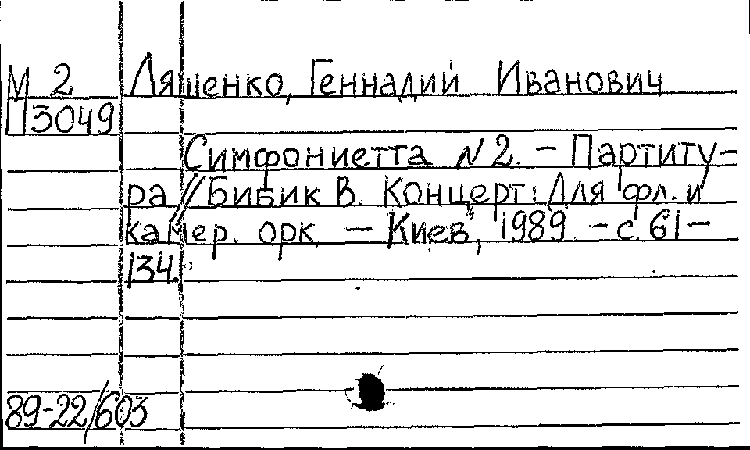 М 2 Ляшенко, Геннадий Иванович
П3049
Симфониетта № 2. – Партиту-
ра // Бибик В. Концерт: Для фл. и
камер. орк. – Киев, 1989. – с. 61–
134.
89-22/603